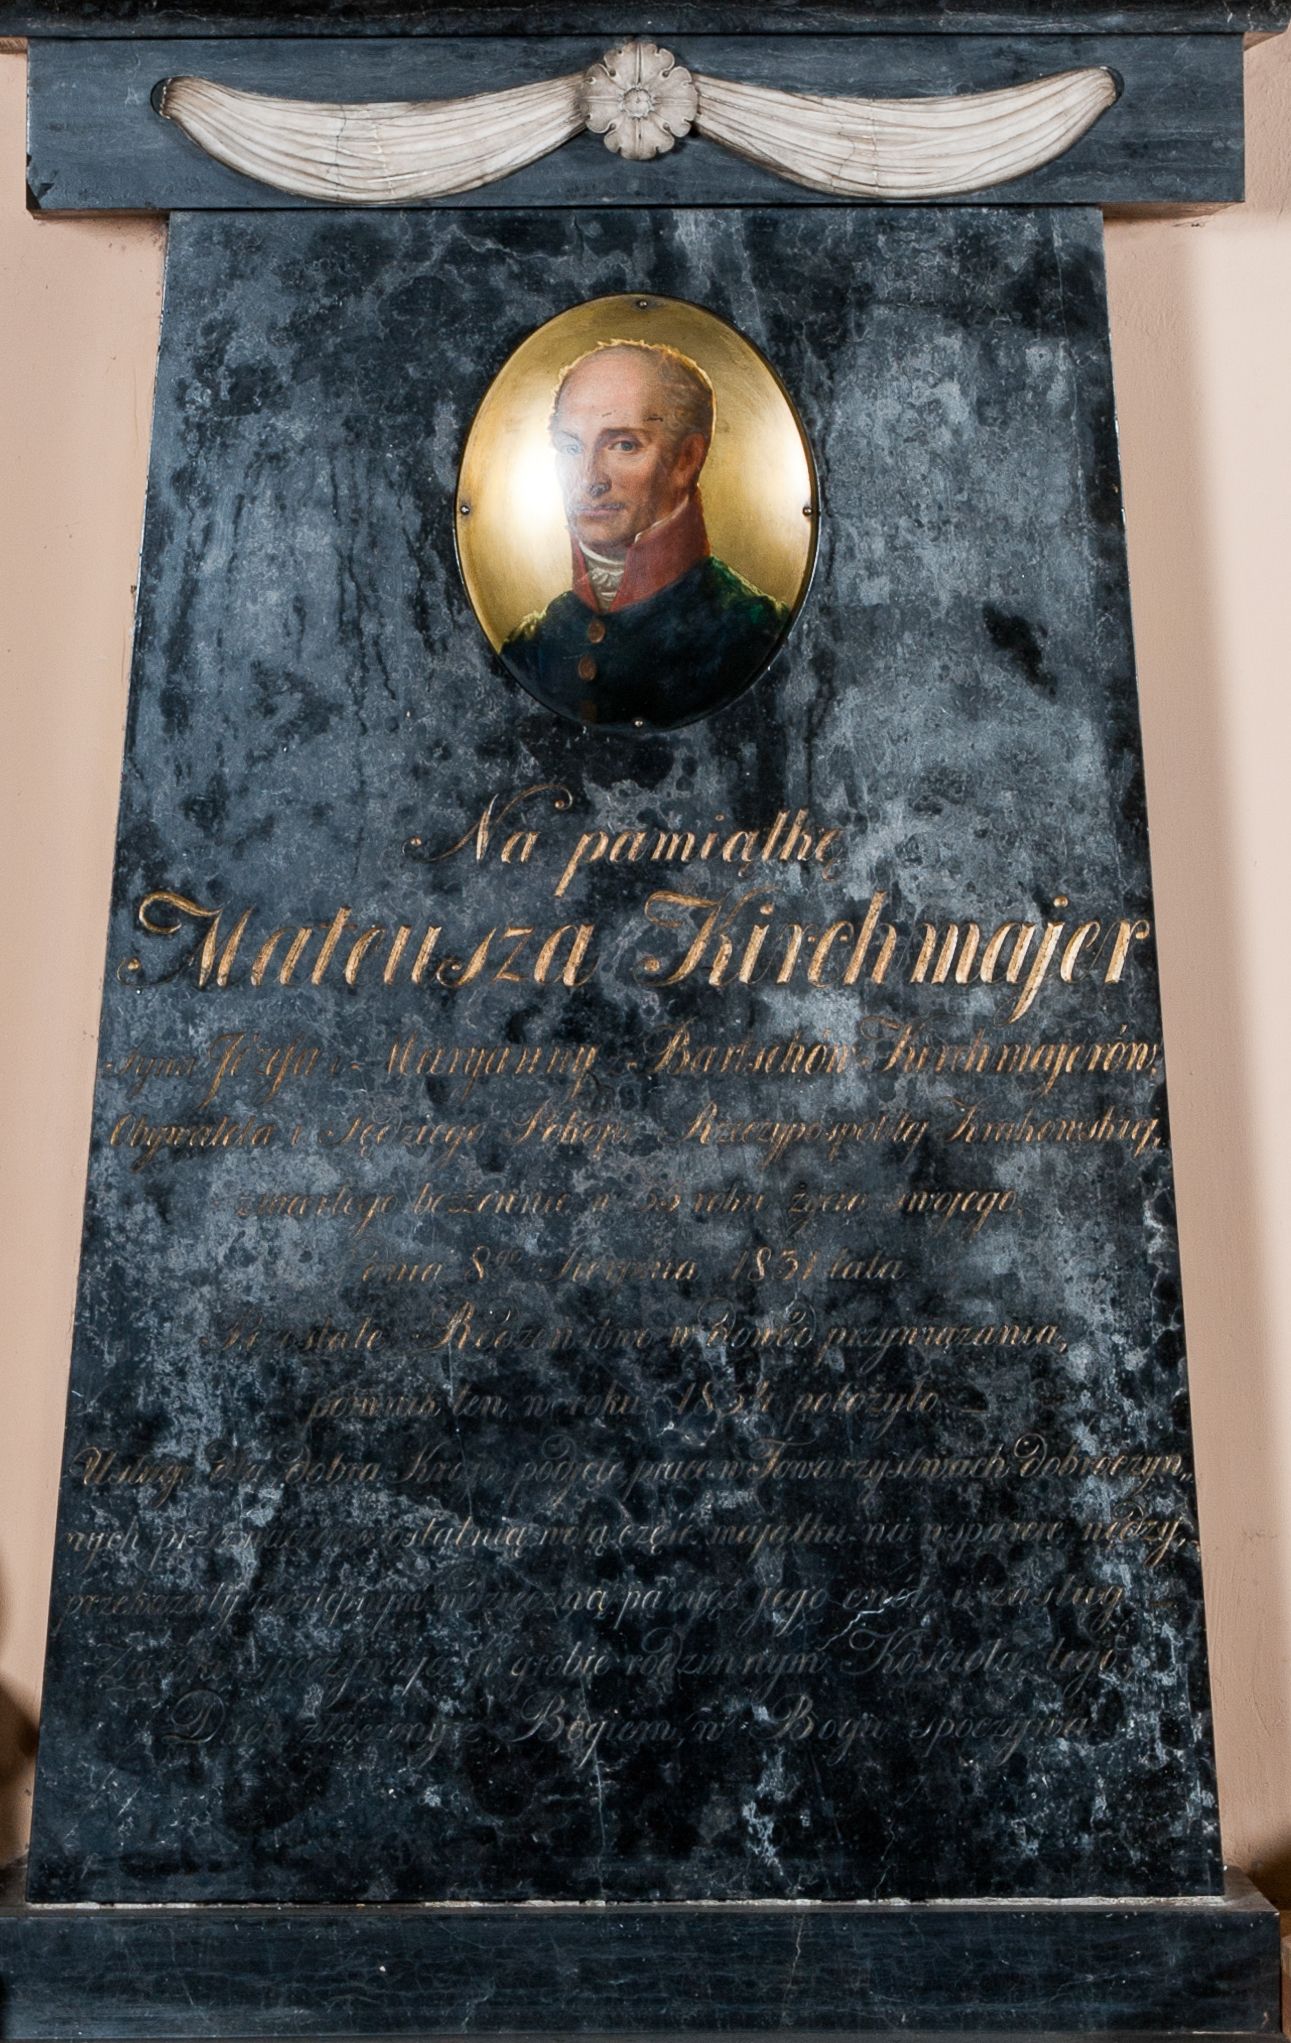 Na pamiątkę
Mateusza Kirchmajer
syna Józefa i Maryanny Bartschów Kirchmajerów,
Obywatela i Sędziego Pokoju Rzeczypospolitej Krakowskiej,
zmarłego bezżennie w 33 roku życia swojego,
dnia 8go Sierpnia 1831 lata
Pozostałe Rodzeństwo w dowód przywiązania,
pomnik ten w roku 1834 położyło
Usługi dla dobra Kraju, podjęte prace w Towarzystwach dobroczyn„
nych przeznaczona ostatnią wolą część majątku na wsparcie nędzy,
przekazały następnym wdzięczną pamięć jego cnót i zasług
Zwłoki spoczywają w grobie rodzinnym Kościoła tego,
Duch złączony z Bogiem, w Bogu spoczywa